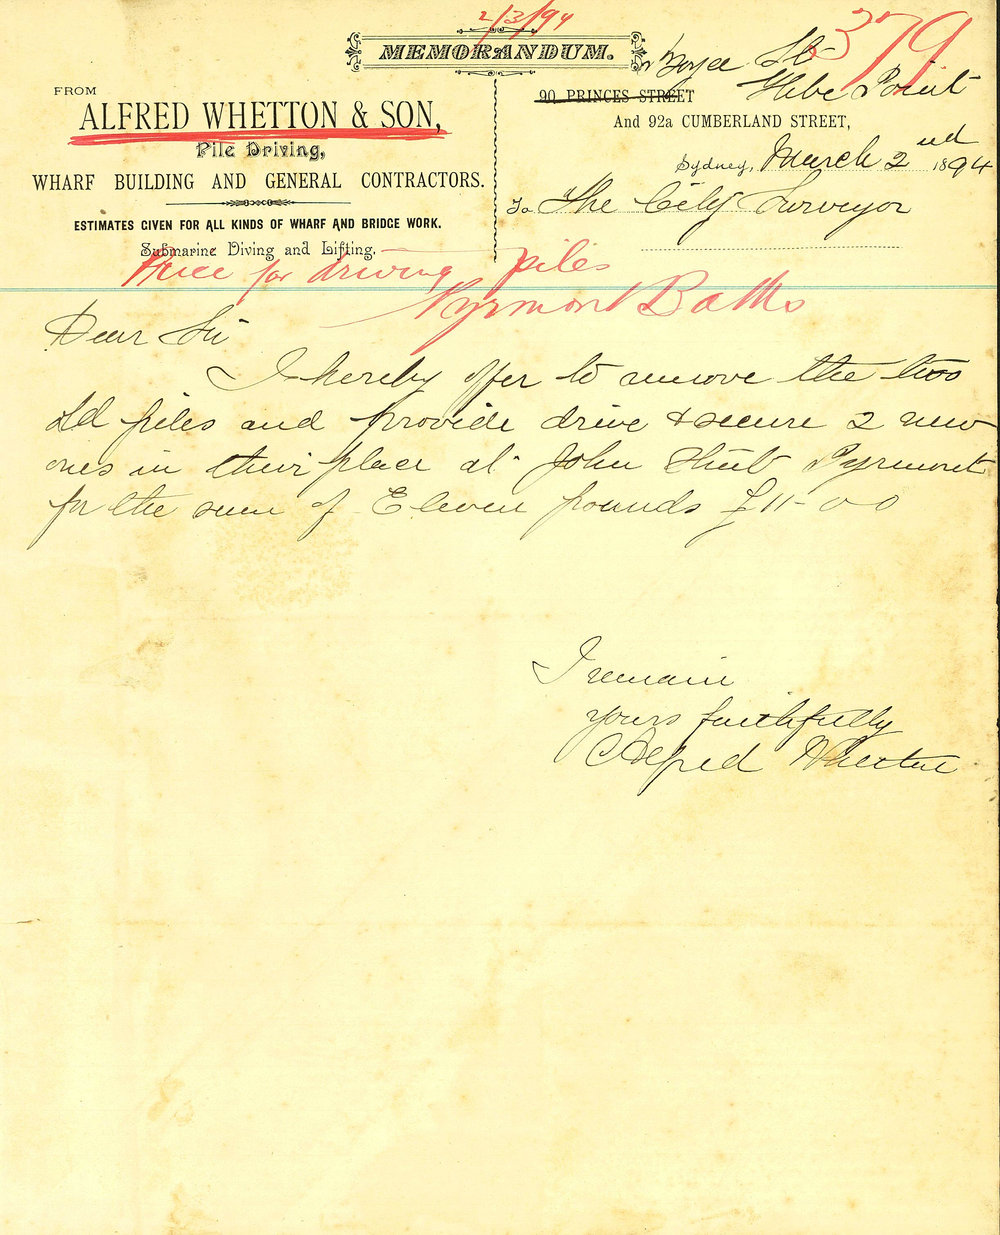 2/3/94
379
MEMORANDUM.
FROM
ALFRED WHETTON & SON,
Pile Driving,
WHARF BUILDING AND GENERAL CONTRACTORS.
ESTIMATES GIVEN FOR ALL KINDS OF WHARF AND BRIDGE WORK.
Submarine Diving and Lifting.
St
Glebe Point
90 PRINCES STREET
And 92a CUMBERLAND STREET,
Sydney, March 2nd 1894
To The City Surveyor
Price for driving piles
Pyrmont Baths
Dear Sir
I hereby offer to remove the two
old piles and provide drive & secure 2 new
ones in their place at John Street Pyrmont
for the sum of Eleven pounds £11-00
I remain
yours faithfully
Alfred Whetton